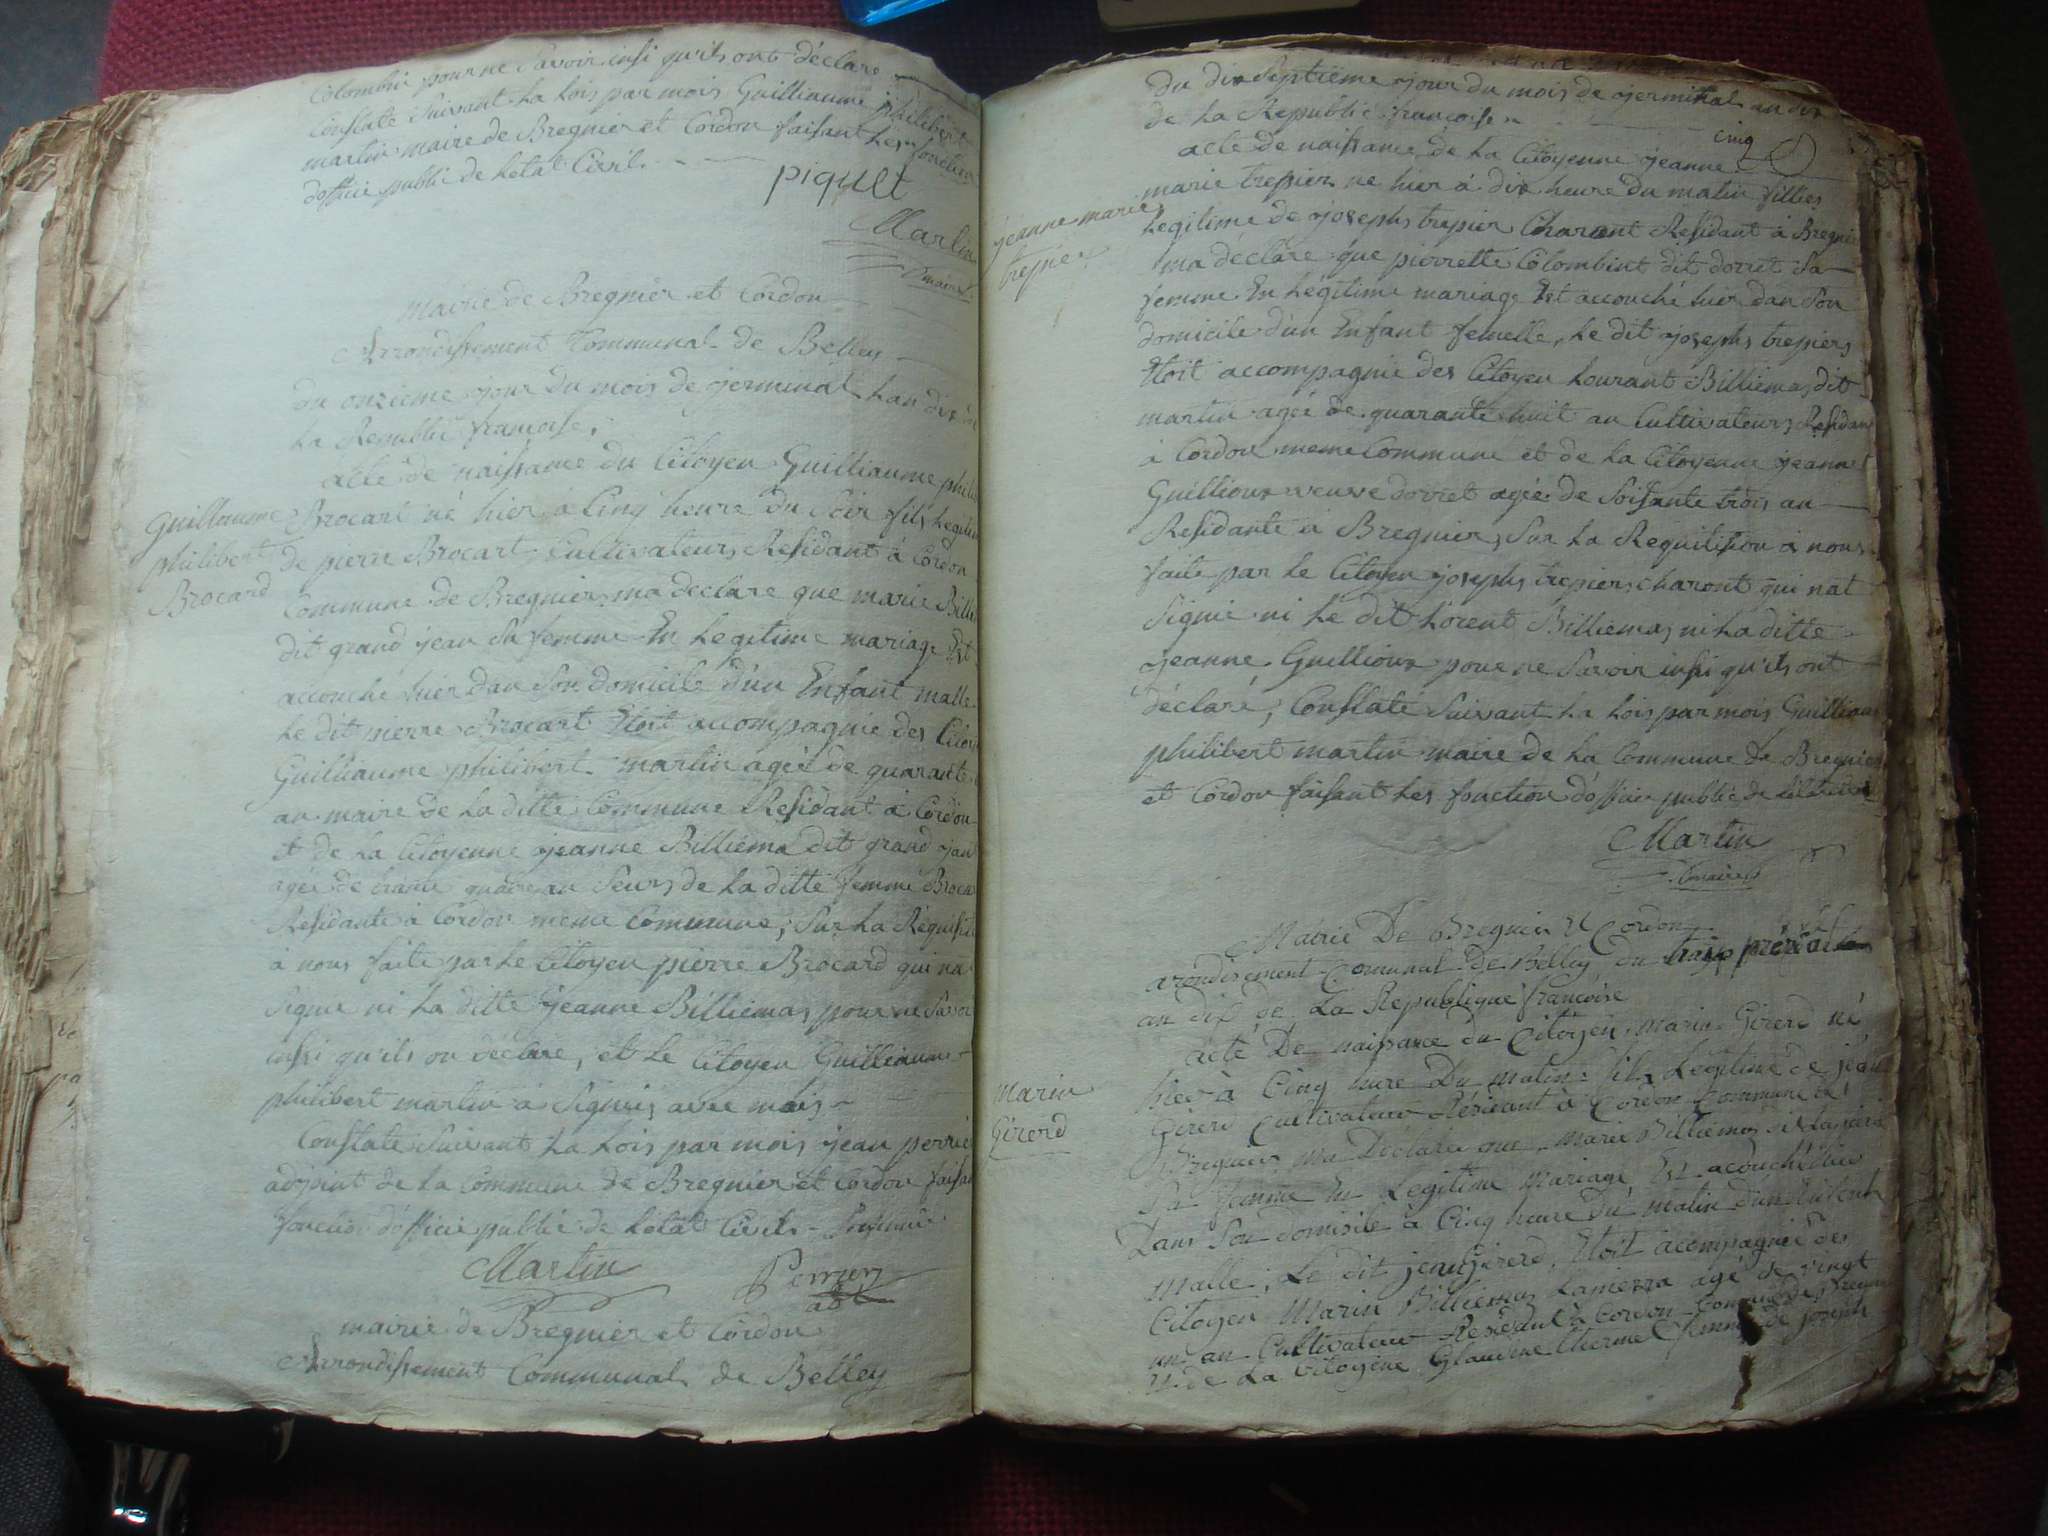 Colombin pour ne Savoir insi qu'ils ont déclaré
Constaté Suivant La Lois par mois Guilliaume philibert
martin maire de Bregnier et Cordon faisant Les fonction
dofficie public de Letat Civil.
piquet
Martin
maire
Mairie de Bregnier et Cordon
Arrondissement Communal de Belley
du onzieme jour du mois de germinal Lan dix de
La Republic francoise.
acte de naissance du Citoyen Guilliaume phili
Guillaume
philibert
Brocard
Brocart né hier a Cinq heure du Soir fils Legitim
de pierre Brocart, Cultivateurs Residant à Cordon
Commune de Bregnier, ma declare que marie Billi
dit grand jean Sa femme En Legitime mariage Est
accouché hier dan Son domicile d'un Enfant malle
Le dit pierre Brocart Etoit accompagnie des Citoi
Guilliaume philibert martin agée de quarante
an maire de La ditte Commune Residant à Cordon
et de La Citoyenne jeanne Billiéma dit grand jan
agée de trante quatre an Seurs de La ditte femme Broca
Residante à Cordon meme Commune; Sur La Réquisit
à nous faite par Le Citoyen pierre Brocard qui na
Signie ni La ditte jeanne Billiemas pour ne Savoi
insi qu'ils on déclare, et Le Citoyen Guilliaume
philibert martin à Signies avec mois
Constate Suivant La Lois par mois jean perrié
adjoint de La Commune de Bregnier et Cordon faisa
fonction d'officie public de Létat Civils
Martin
Perrier
adj
mairie de Bregnier et Cordon
Arrondissement Communal de Belley
du dix Septiéme jour du mois de germinal an dix
de La Republic francoise
cinq
acte de naissance de La Citoyenne jeanne
jeanne marie
trepier
marie trepier ne hier à dix heure du matin filles
Legitime de josephs trepier Charont Residant à Bregnie
ma déclare que pierrette Colombint dit dorret Sa
femme En Légitime mariage Est accouché hier dan Son
domicile d'un Enfant femelle, Le dit josephs trepiers
Etoit accompagnie des Citoyen Lourant Billiémas dit
martin agée de quarante huit an Cultivateurs Residan
à Cordon meme Commune et de La Citoyenne jeanne
Guillioux veuve dorret agée de Soisante trois an
Residante à Bregnier, Sur La Requisition à nous
faite par Le Citoyen josephs trepiers charont qui nat
Signie ni Le dit Lorent Billiemas ni La ditte
jeanne Guillioux pour ne Savoir insi qu'ils ont
déclaré, Constaté Suivant La Lois par mois Guilliau
philibert martin maire de La Commune de Bregnier
et Cordon faisant Les fonction d'officie public de
Martin
maire
Mairie De Bregnier et Cordon
arondisement Communal de Belley, du
an dix de La Republique francoise
acte De naissance du Citoyen Marin Girerd né
Marin
Girerd
hier à Cinq heure Du matin fils Legitime de jean
Girerd Cultivateur Résidant à Cordon Commune de
Bregnier ma Déclaré que Marie Billiémas
Sa femme En Legitime Mariage Est acouché hier
Dans Son domisile à Cinq heure Du matin d'un
Malle, Le dit jean Girerd, Etoit acompagnié des
Citoyen Marin Billiemas agé de vingt
un an Cultivateur Residant à Cordon Comune de Bregni
et de La Citoyene Glaudine femme de joseph